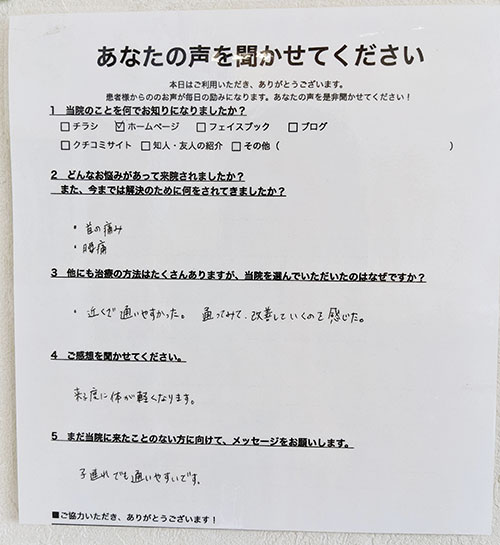 あなたの声を聞かせてください
本日はご利用いただき、ありがとうございます。
患者様からののお声が毎日の励みになります。あなたの声を是非聞かせてください！
1 当院のことを何でお知りになりましたか？
□チラシ ☑ホームページ □フェイスブック □ブログ
□クチコミサイト □知人・友人の紹介 □その他（ ）
2 どんなお悩みがあって来院されましたか？
また、今までは解決のために何をされてきましたか？
・首の痛み
・腰痛
3 他にも治療の方法はたくさんありますが、当院を選んでいただいたのはなぜですか？
・近くで通いやすかった。 通ってみて、改善していくのを感じた。
4 ご感想を聞かせてください。
来る度に体が軽くなります。
5 まだ当院に来たことのない方に向けて、メッセージをお願いします。
子連れでも通いやすいです。
■ご協力いただき、ありがとうございます！